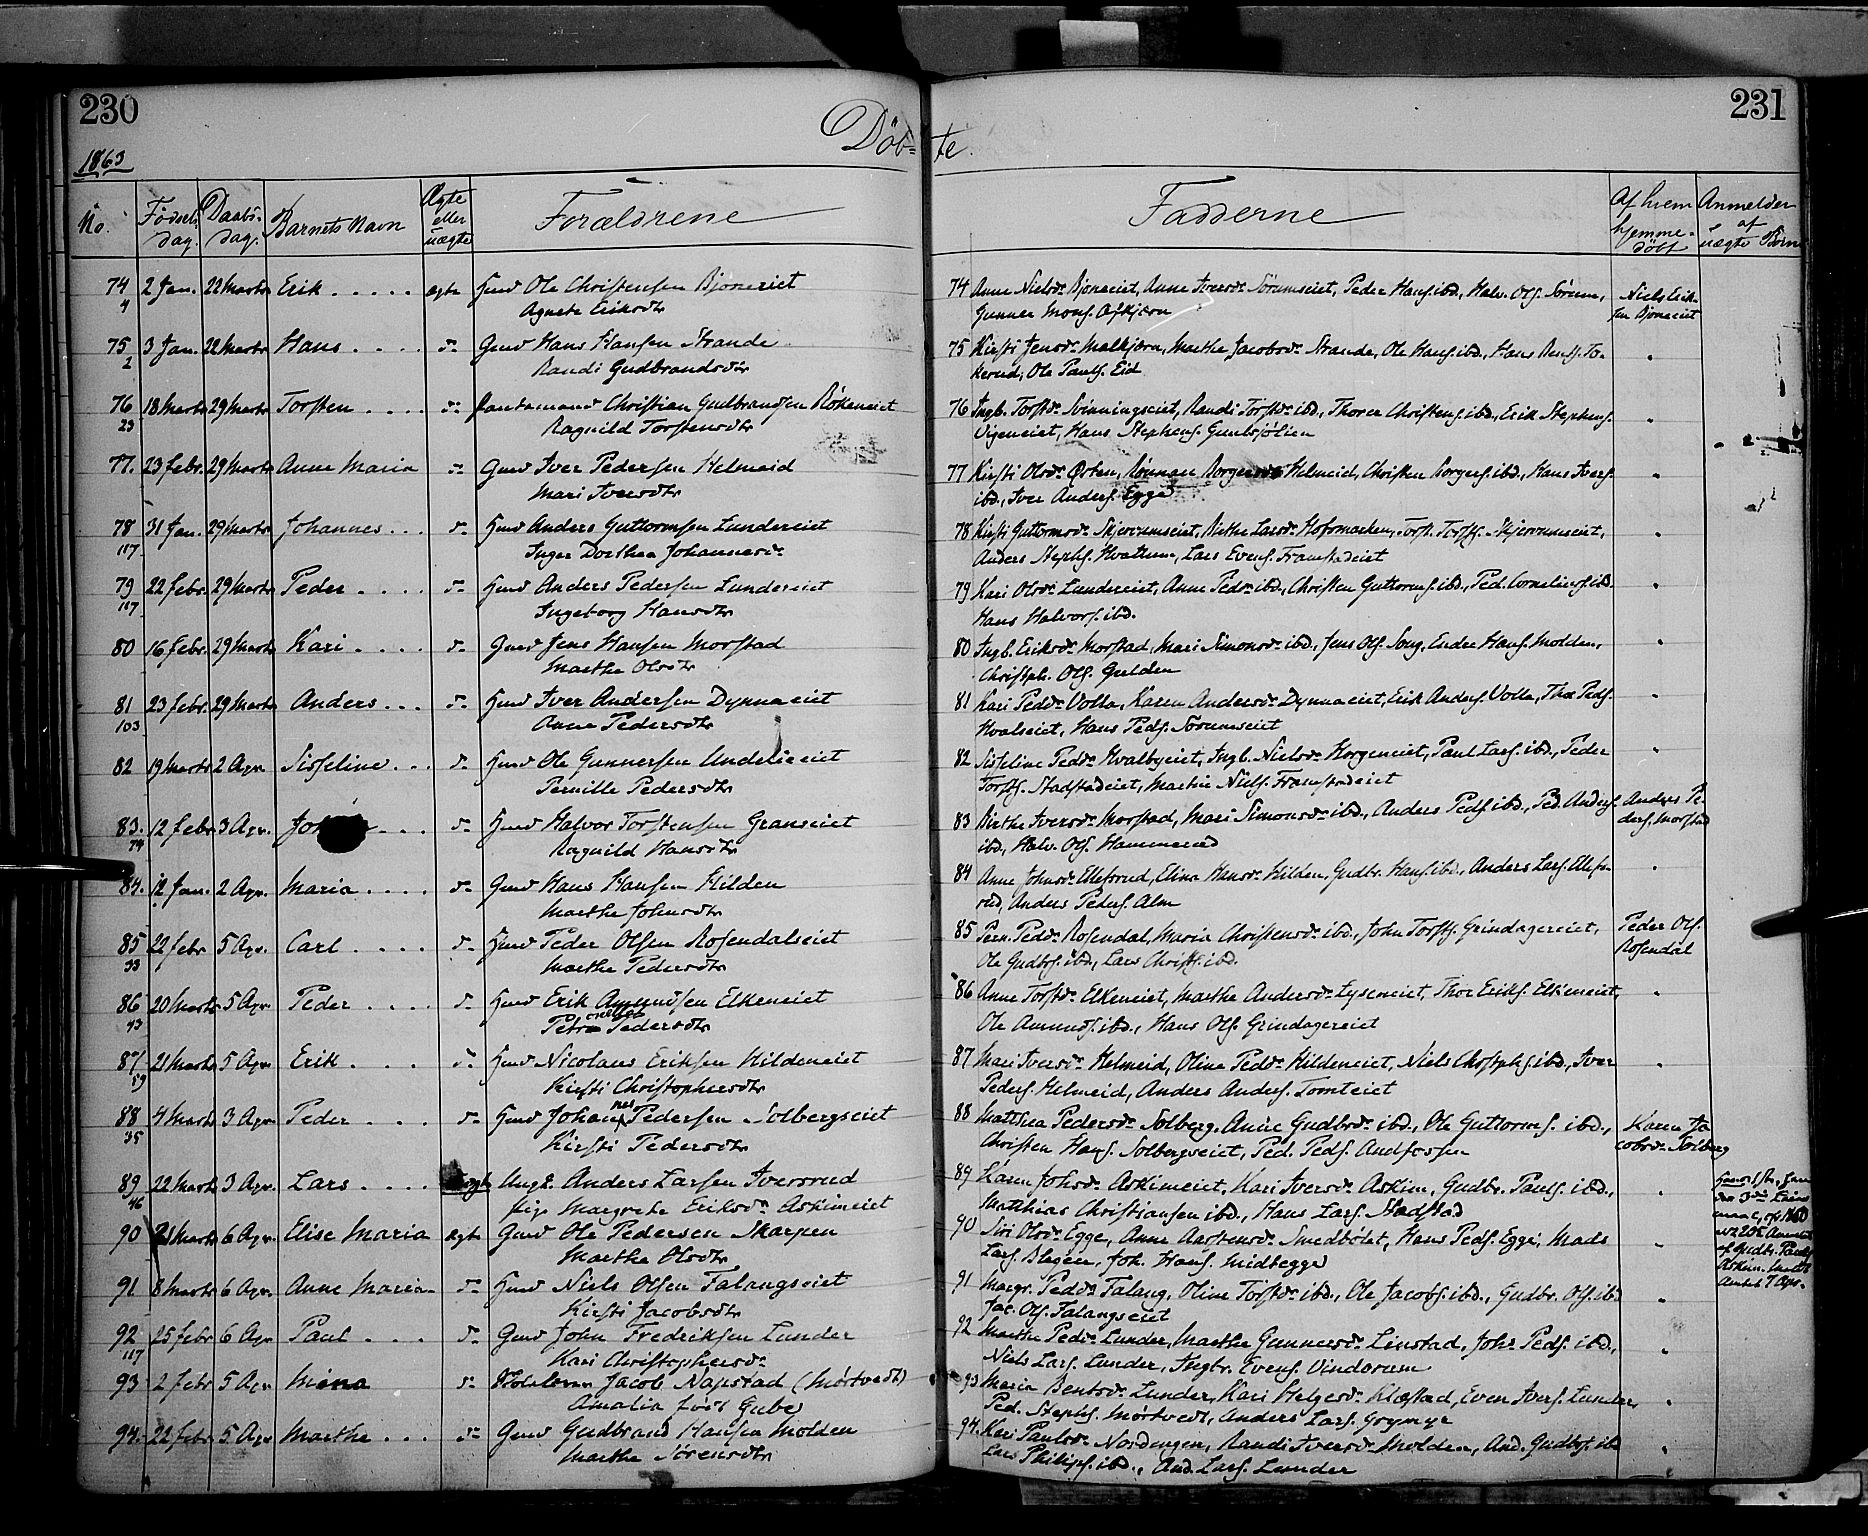 230
Döb=
1863
No.
Födsels dag.
Daabs- dag.
Barnets Navn
Ægte eller uægte
Forældrene
74 2 Jan. 22 Marts Erik ..... ægte Huusm Ole Christensen Bjoneeiet
4 Agnete Eriksdtr
75 3 Jan. 22 Marts Hans .... do Gmd Hans Hansen Strande
2 Randi Gudbrandsdtr
76 18 Marts 29 Marts Torsten .... do Christian Gudbrandsen Rökeneiet
23 Ragnild Torstensdtr
77. 23 febr. 29 Marts Anne Maria do Gmd Iver Pedersen Helmeid
Mari Iversdtr
78 31 Jan. 29 Marts Johannes ... do Hmd Anders Guttormsen Lundereiet
117 Inger Dorthea Johannesdr
79 22 febr. 29 Marts Peder .... do Hmd Anders Pedersen Lundereiet
117 Ingeborg Hansdtr
80 16 febr. 29 Marts Kari .... do Gmd Jens Hansen Morstad
Marthe Olsdtr
81 23 febr. 29 Marts Anders ... do Hmd Iver Andersen Dynnaeiet
103 Anne Pedersdtr
82 19 Marts 2 Apr. Sisseline .. do Hmd Ole Gunnersen Undelieeiet
Pernille Pedersdtr
83. 12 febr 3 Apr. do Hmd Halvor Torstensen Graneeiet
74 Ragnild Hansdtr
84. 12 Jan. 2 Apr. Maria .... do Gmd Hans Hansen Hilden
Marthe Johnsdtr
85 22 febr 5 Apr. Carl .... do Hmd Peder Olsen Rosendalseiet
33 Marthe Pedersdtr
86 20 Marts 5 Apr. Peder .... do Hmd Erik Amundsen Elkeneiet
43 Petronelle Pedersdtr
87 21 Marts 5 Apr Erik .... do Hmd Nicolaus Eriksen Hildeneiet
89 Kirsti Christophersdtr
88 4 Marts 3 Apr. Peder ... do Hmd Johannes Pedersen Solbergseiet
35 Kirsti Pedersdtr
89 22 Marts 3 Apr. Lars .... Ungk. Anders Larsen Iversrud
46 pige Margrethe Eriksdr Askimeiet
90 21 Marts 6 Apr. Elise Maria ægte Gmd Ole Pedersen Skarpen
Marthe Olsdtr
91 8 Marts 6 Apr. Anne Maria do Hmd Niels Olsen Falangseiet
Kirsti Jacobsdtr
92 25 febr 6 Apr Paul ... do Gmd John Fredriksen Lunder
117 Kari Christophersdr
93 2 febr 5 Apr Mina do Jacob Napstad (Mörtvedt)
Amalia född Gube
94. 22 febr 5 Apr. Marthe ... do Gmd Gudbrand Hansen Molden
Marthe Sörensdtr
231
te.
Fadderne
Af hvem hjemme- döbt
Anmelder af uægte Börn
74 Anne Nielsdr Bjoneeiet, Anne Iversdr Sörumseiet, Peder Hans. ibd., Halv. Ols. Sörum, Niels Erik-
Gunner Mons. Askjærn sen Bjoneeiet
75 Kirsti Jensdr Malkjærn, Marthe Jacobsdr Strande, Ole Hans. ibd., Hans Bents. To-
kerud, Ole Pauls. Eid
76 Ingb. Torstdr Svinningseiet, Randi Torstdr ibd., Thorer Christens. ibd., Erik Stephens.
Vigeneiet, Hans Stephens. Gunbsjölien
77 Kirsti Olsdr Östen, Rönnau Borgersdr Helmeid, Christen Borgers. ibd., Hans Ivers.
ibd., Iver Anders. Egge
78 Kirsti Guttormsdr Skjervumseiet, Berthe Larsdr Hofsmarken, Torst. Torsts. Skjervumseiet,
Anders Stephs. Hvattum, Lars Evens. Framstadeiet
79 Kari Olsdr Lundereiet, Anne Pedsdr ibd., Christen Guttorms. ibd., Ped. Cornelius. ibd.
Hans Halvors. ibd.
80 Ingb. Eriksdr Morstad, Mari Simonsdr ibd., Jens Ols. Song, Endre Hans. Molden,
Christoph. Ols. Gulden
81 Kari Pedsdr Volla, Karen Andersdr Dynnaeiet, Erik Anders. Volla, Thor Peds.
Hvalseiet, Hans Peds. Sörumseiet
82 Sisseline Pedsdr Hvalbyeiet, Ingb. Nielsdr Horgeneiet, Paul Lars. ibd., Peder
Torsts. Stadstadeiet, Martin Niels. Framstadeiet
83 Berthe Iversdr Morstad, Mari Simonsdr ibd., Anders Peds. ibd., Ped. Anders. Anders Pe-
ibd., Halv. Ols. Hammerud ders. Morstad
84 Anne Johnsdr Ellefsrud, Elina Hansdr Hilden, Gudbr. Hans. ibd., Anders Lars. Ellefs-
rud, Anders Peders. Alm
85 Pern. Pedsdr Rosendal, Maria Christensdr ibd., John Torsts. Grindagereiet, Peder Ols.
Ole Gudbrs. ibd., Lars Christs. ibd. Rosendal
86 Anne Torstdr Elkeneiet, Marthe Andersdr Lyseneiet, Thor Eriks. Elkeneiet,
Ole Amunds. ibd., Hans Ols. Grindagereiet
87 Mari Iversdr Helmeid, Oline Pedsdr Hildeneiet, Niels Chrstphs. ibd., Iver
Peders. Helmeid, Anders Anders. Tomteiet
88 Matthea Pedersdr Solberg, Anne Gudbrdr ibd., Ole Guttorms. ibd., Karen Ja-
Christen Hans. Solbergseiet, Ped. Peds. Andfossen cobsdr Solberg
89 Karen Johsdr Askimeiet, Kari Iversdr Askim, Gudbr. Pauls. ibd.,
Matthias Christiansen ibd., Hans Lars. Stadstad
90 Siri Olsdr Egge, Anne Aastensdr Smedbölet, Hans Peds. Egge, Mads
Lars. Blegen, Joh. Hans. Midtegge
91 Margr. Pedsdr Falang, Oline Torstdr ibd., Ole Jacobs. ibd., Gudbr. Ols. ibd
Jac. Ols. Falangseiet
92 Marthe Pedsdr Lunder, Marthe Gunnersdr Linstad, Johs Peds. ibd.,
Niels Lars. Lunder, Ingbr. Evens. Vindorum
93 Maria Bentsdr Lunder, Kari Helgesdr Klæstad, Even Ivers. Lunder,
Ped. Stephs. Mörtvedt, Anders Lars. Grymyr
94. Kari Paulsdr Nordengen, Randi Iversdr Molden, And. Gudbrs. ibd
Lars Philips. ibd., And. Lars. Lunder